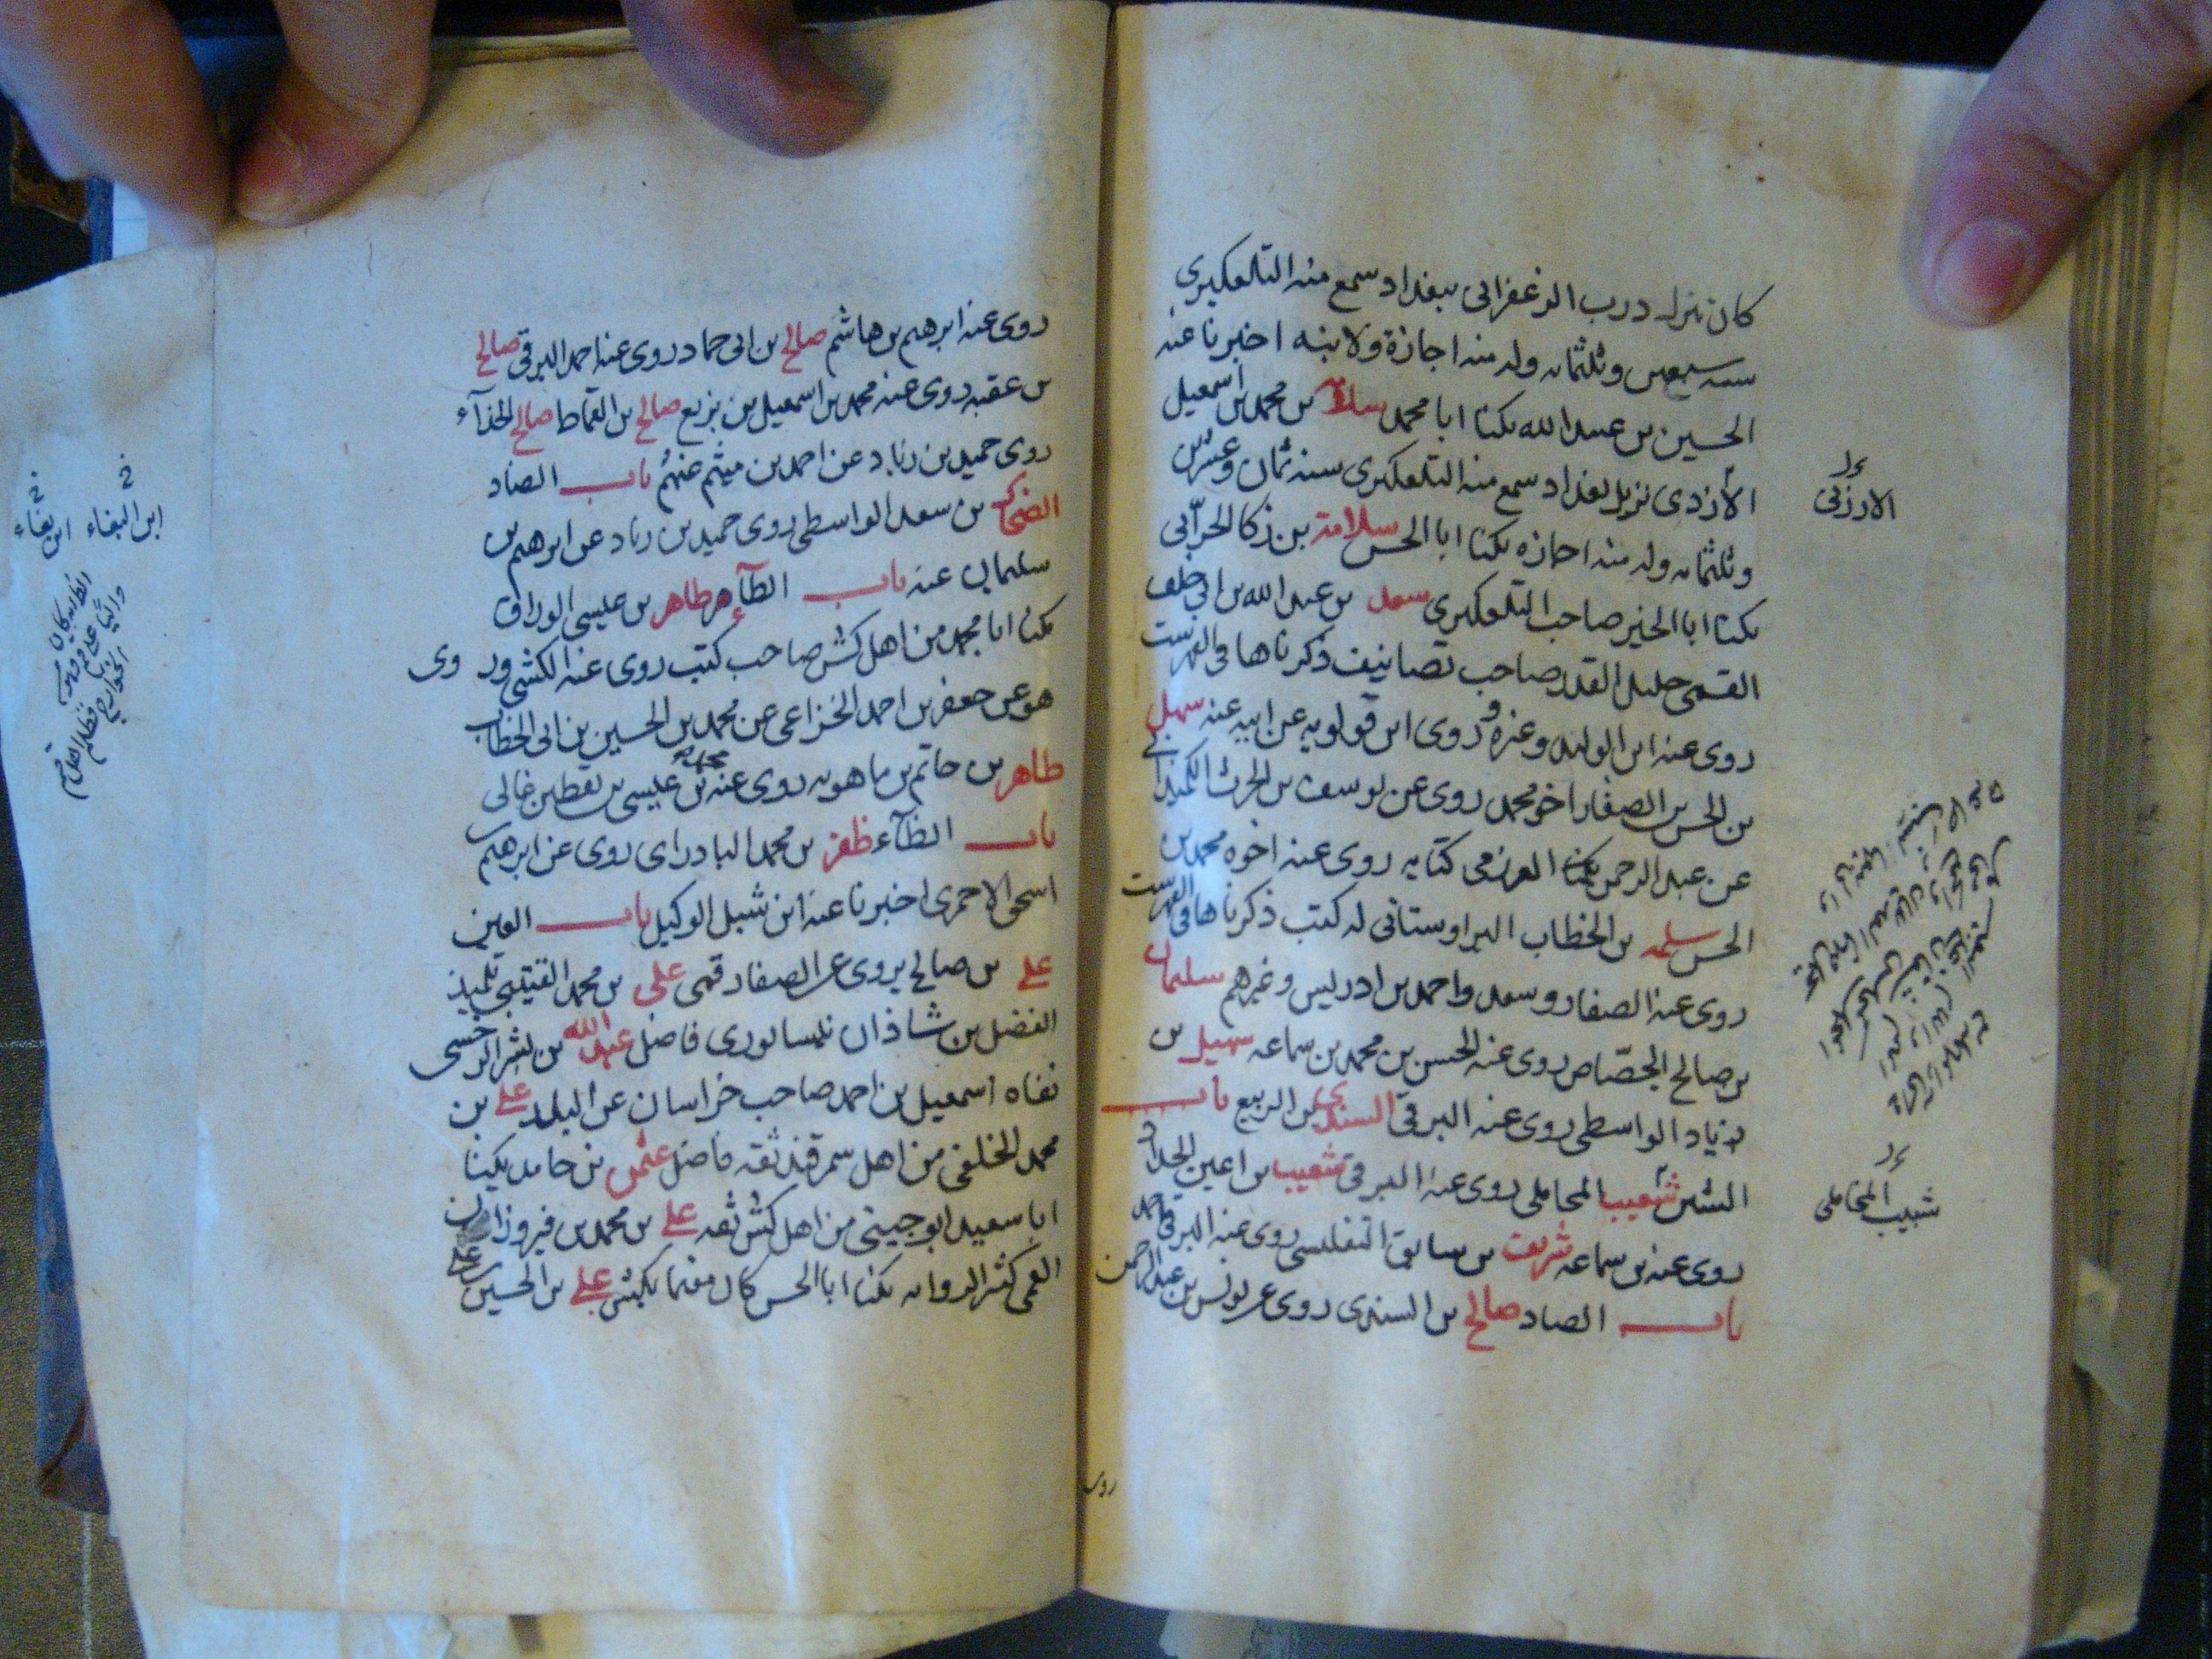 كان ينزل درب الزعفراني ببغداد سمع منه التلعكبري
سنة سبعين وثلثمائة وله منه اجازة ولابنه اخبرنا عنه
الحسين بن عبيد الله يكنا ابا محمد سلامة بن محمد بن اسمعيل
الأرزدى نزيل بغداد سمع منه التلعكبرى سنة ثمان وعشرين
وثلثمائة وله منه اجازه يكنا ابا الحسن سلامة بن ذكا الحرّانى
يكنا ابا الخير صاحب التلعكبرى سعد بن عبد الله بن ابي خلف
القمي جليل القدر صاحب تصانيف ذكرناها في الفهرست
روى عنه ابن الوليد وغيره وروى ابن قولويه عن ابيه عنه سهل
بن الحسن الصفار اخو محمد روى عن يوسف بن الحرث الكميدانى
عن عبد الرحمن العرزمى كتابه روى عنه اخوه محمد بن
الحسن سلمه بن الخطاب البراوستانى له كتب ذكرناها في الفهرست
روى عنه الصفار وسعد واحمد بن ادريس وغيرهم سليمان
بن صالح الجصّاص روى عنه الحسن بن محمد بن سماعه سهيل بن
زياد الواسطى روى عنه البرقي السندى بن الربيع باب
الشين شعيب المحاملى روى عنه البرقي شعيب بن اعين الحداد
روى عنه بن سماعه شريف بن سابق التفليسى روى عنه البرقي احمد
باب الصاد صالح بن السندى روى عن يونس بن عبد الرحمن
الارزنى
شبيب المحاملى
روى
روى عنه ابرهيم بن هاشم صالح بن ابى حماد روى عنه احمد البرقي صالح
بن عقبه روى عنه محمد بن اسمعيل بن بزيع صالح بن القماط صالح الحذآء
روى حميد بن زياد عن احمد بن ميثم عنهم باب الضاد
الضحاك بن سعد الواسطى روى حميد بن زياد عن ابرهيم بن
سليمان عنه باب الطآء طاهر بن عيسى الوراق
يكنا ابا محمد من اهل كش صاحب كتب روى عنه الكشى وروى
هو عن جعفر بن احمد الخزاعى عن محمد بن الحسين بن ابى الخطاب
طاهر بن حاتم بن ماهويه روى عنه محمد بن عيسى بن يقطين غالى
باب الظآء ظفر بن محمد البادراى روى عن ابرهيم بن
اسحق الاحمرى اخبرنا عنه ابن شبل الوكيل باب العين
على بن صالح يروى عن الصفار قمى على بن محمد القتيبى تلميذ
الفضل بن شاذان نيسابورى فاضل عبد الله بن بشر السرخسى
نفاه اسمعيل بن احمد صاحب خراسان عن البلد على بن
محمد الخلفى من اهل سمرقند ثقه فاضل عثمن بن حامد يكنا
ابا سعيد ابوجينى من اهل كش ثقه على بن محمد بن فيروزان
القمى كثير الروايه يكنا ابا الحسن كان مقيما بكش على بن الحسين بن على
ابن البغاء ابن بغاء